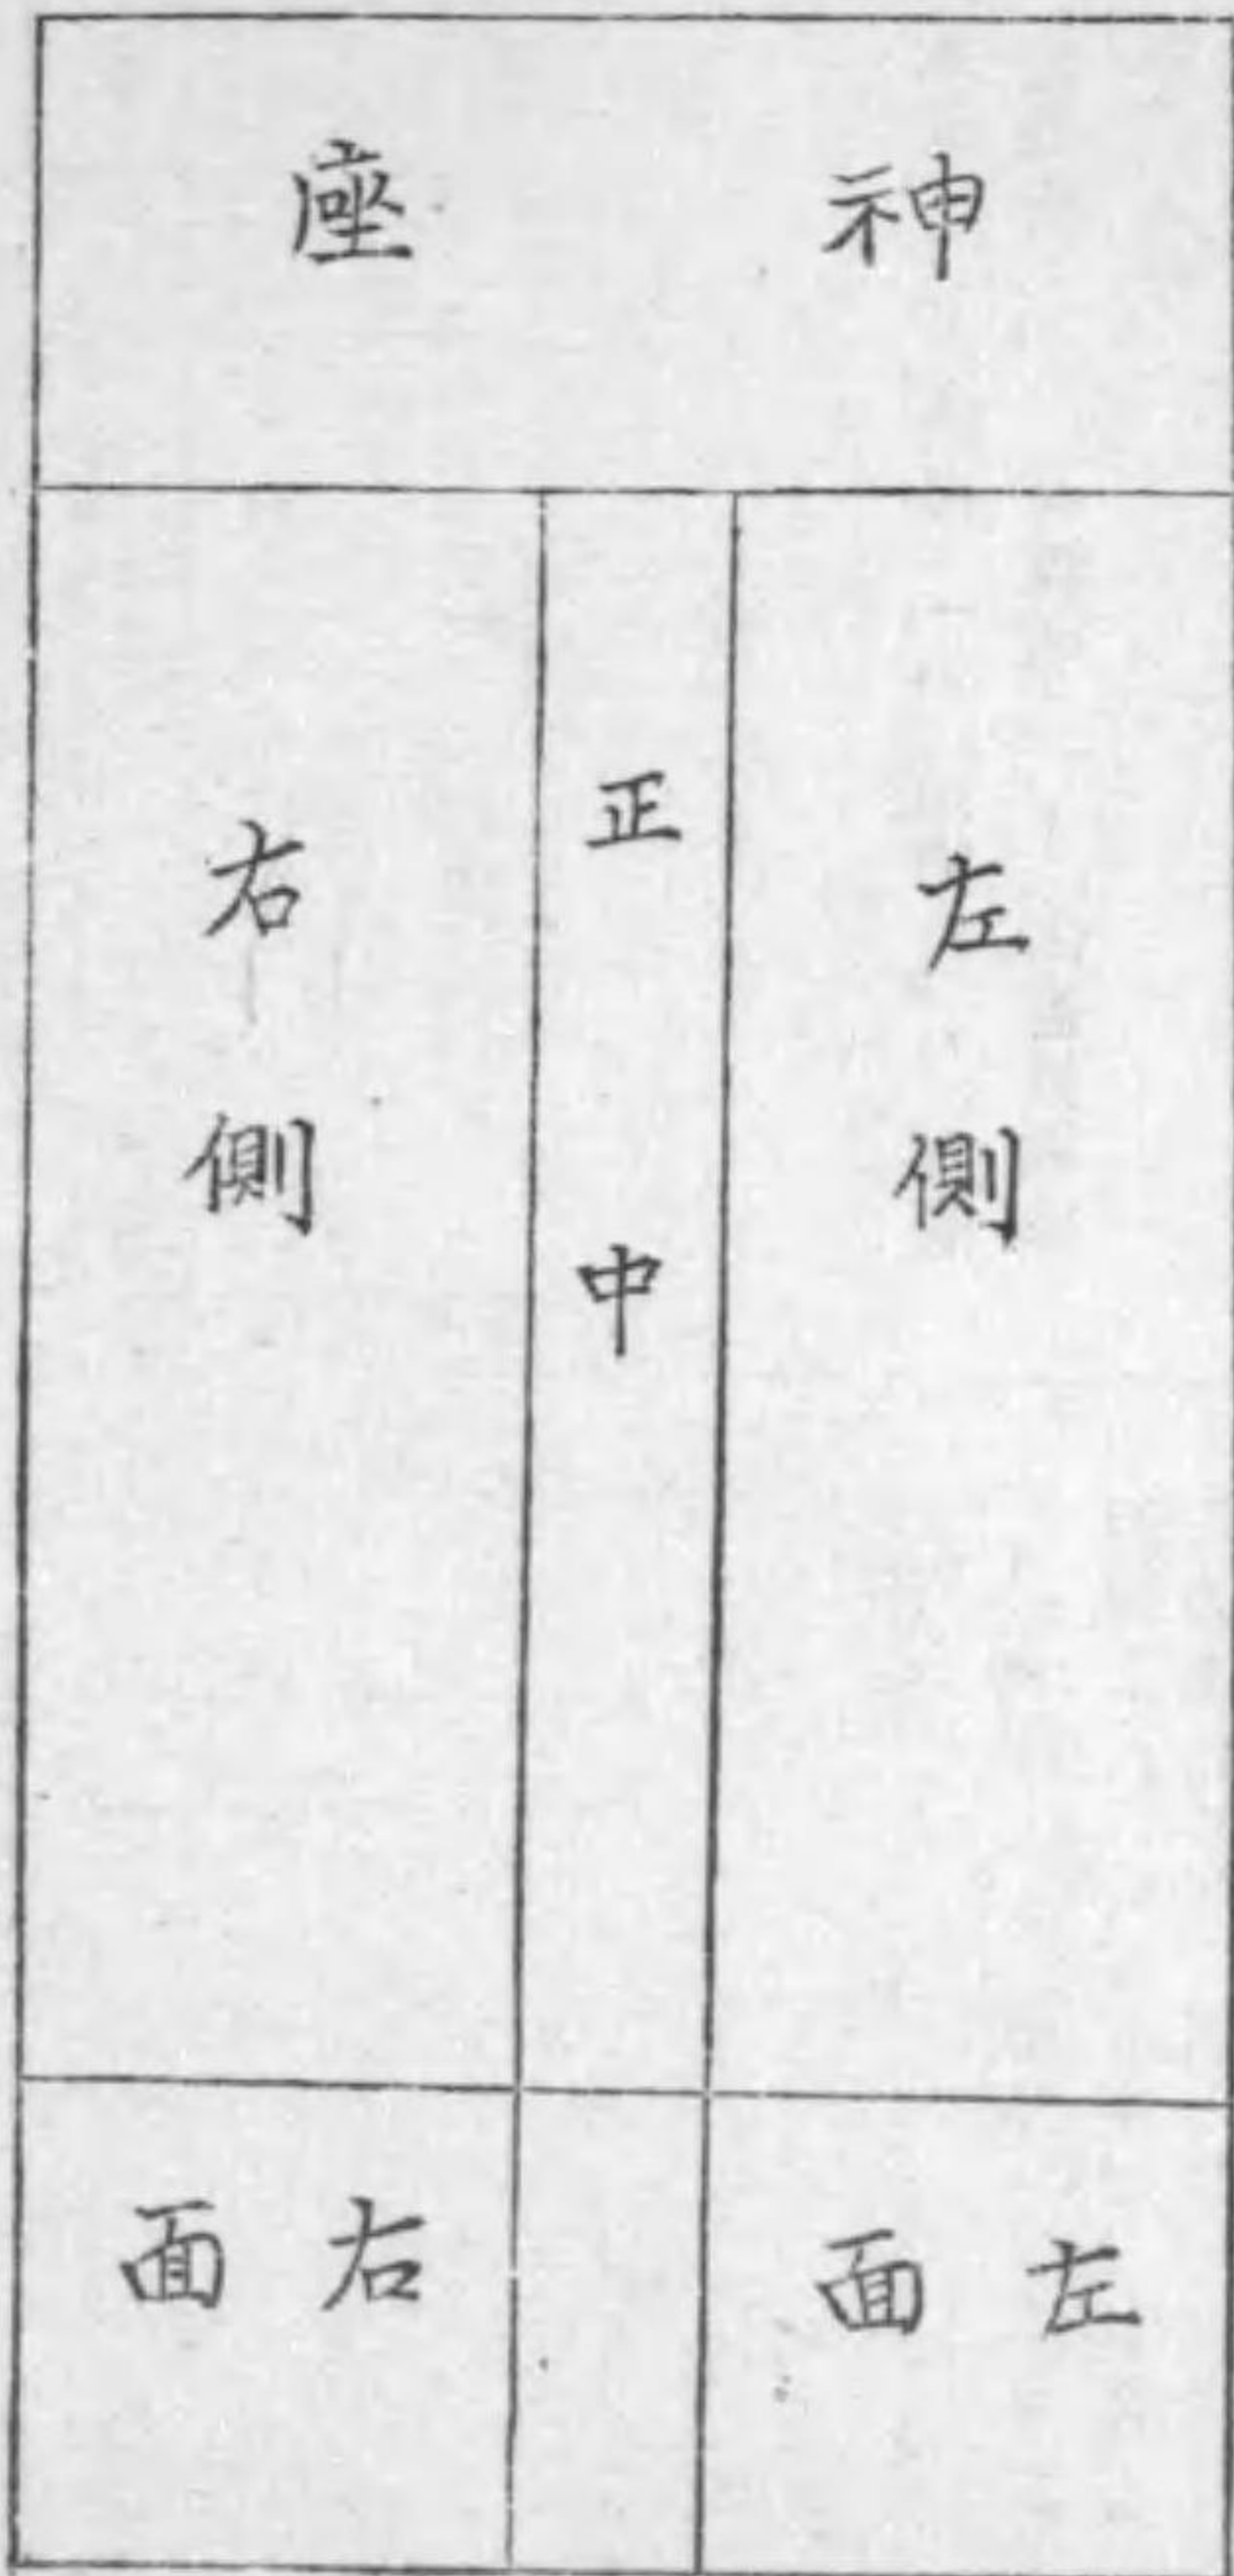 神座
左側
正中
右側
左面
右面